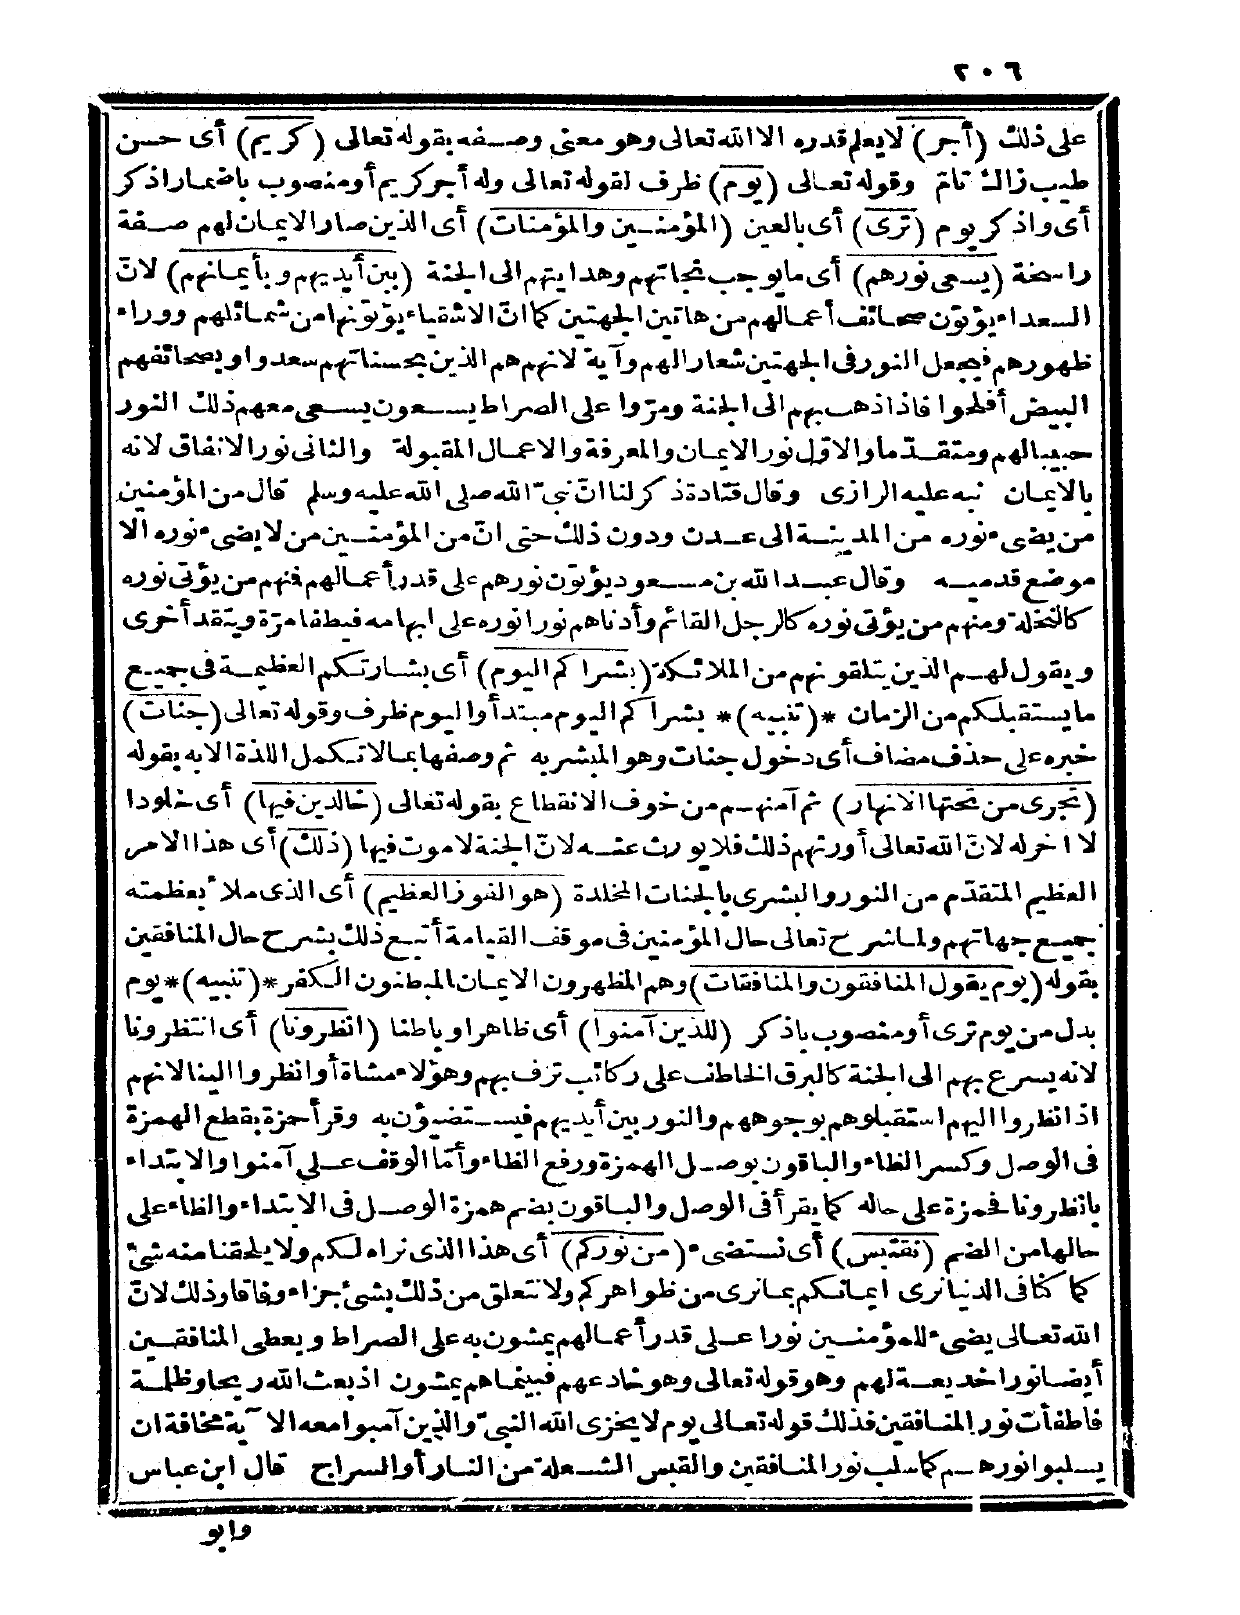 ٢٠٦
على ذلك (أجر) لا يعلم قدره الا الله تعالى وهو معنى وصفه بقوله تعالى (كريم) أى حسن
طيب زاك تام وقوله تعالى (يوم) ظرف لقوله تعالى وله أجر كريم أو منصوب باضمار اذكر
أى واذكر يوم (ترى) أى بالعين (المؤمنين والمؤمنات) أى الذين صار الايمان لهم صفة
راسخة (يسعى نورهم) أى ما يوجب نجاتهم وهدايتهم الى الجنة (بين أيديهم وبأيمانهم) لانّ
السعداء يؤتون صحائف أعمالهم من هاتين الجهتين كما انّ الاشقياء يؤتونها من شمائلهم ووراء
ظهورهم فيجعل النور فى الجهتين شعارا لهم وآية لانهم هم الذين بحسناتهم سعدوا وبصحائفهم
البيض أفلحوا فاذا ذهب بهم الى الجنة ومرّوا على الصراط يسعون يسعى معهم ذلك النور
حبيبا لهم ومتقدّما والاوّل نور الايمان والمعرفة والاعمال المقبولة والثانى نور الانفاق لانه
بالايمان نبه عليه الرازى وقال قتادة ذكر لنا انّ نبىّ الله صلى الله عليه وسلم قال من المؤمنين
من يضىء نوره من المدينة الى عدن ودون ذلك حتى انّ من المؤمنين من لا يضىء نوره الا
موضع قدميه وقال عبد الله بن مسعود يؤتون نورهم على قدر أعمالهم فمنهم من يؤتى نوره
كالنخلة ومنهم من يؤتى نوره كالرجل القائم وأدناهم نورا نوره على ابهامه فيطفا مرّة ويتقد أخرى
ويقول لهم الذين يتلقونهم من الملائكة (بشراكم اليوم) أى بشارتكم العظيمة فى جميع
ما يستقبلكم من الزمان *(تنبيه)* بشراكم اليوم مبتدأ واليوم ظرف وقوله تعالى (جنات)
خبره على حذف مضاف أى دخول جنات وهو المبشر به ثم وصفها بما لا تكمل اللذة الا به بقوله
(تجرى من تحتها الانهار) ثم آمنهم من خوف الانقطاع بقوله تعالى (خالدين فيها) أى خلودا
لا اخر له لانّ الله تعالى أورثهم ذلك فلا يورث عنهم لانّ الجنة لا موت فيها (ذلك) أى هذا الامر
العظيم المتقدّم من النور والبشرى بالجنات المخلدة (هو الفوز العظيم) أى الذى ملأ بعظمته
جميع جهاتهم ولما شرح تعالى حال المؤمنين فى موقف القيامة أتبع ذلك بشرح حال المنافقين
بقوله (يوم يقول المنافقون والمنافقات) وهم المظهرون الايمان المبطنون الكفر *(تنبيه)* يوم
بدل من يوم ترى أو منصوب باذكر (للذين آمنوا) أى ظاهرا وباطنا (انظرونا) أى انتظرونا
لانه يسرع بهم الى الجنة كالبرق الخاطف على ركائب تزف بهم وهؤلاء مشاة أو انظروا الينا لانهم
اذا نظروا اليهم استقبلوهم بوجوههم والنور بين أيديهم فيستضيؤن به وقرأ حمزة بقطع الهمزة
فى الوصل وكسر الظاء والباقون بوصل الهمزة ورفع الظاء وأمّا الوقف على آمنوا والابتداء
بانظرونا فحمزة على حاله كما يقرأ فى الوصل والباقون بضم همزة الوصل فى الابتداء والظاء على
حالها من الضم (نقتبس) أى نستضىء (من نوركم) أى هذا الذى نراه لكم ولا يلحقنا منه شىّ
كما كنا فى الدنيا نرى ايمانكم بما نرى من ظواهركم ولا نتعلق من ذلك بشئ جزاء وفاقا وذلك لانّ
الله تعالى يضىء للمؤمنين نورا على قدر أعمالهم يمشون به على الصراط ويعطى المنافقين
أيضا نورا خديعة لهم وهو قوله تعالى وهو خادعهم فبينما هم يمشون اذ بعث الله ريحا وظلمة
فاطفأت نور المنافقين فذلك قوله تعالى يوم لا يخزى الله النبىّ والذين آمنوا معه الآية مخافة ان
يسلبوا نورهم كما سلب نور المنافقين والقبس الشعلة من النار أو السراج قال ابن عباس
وابو